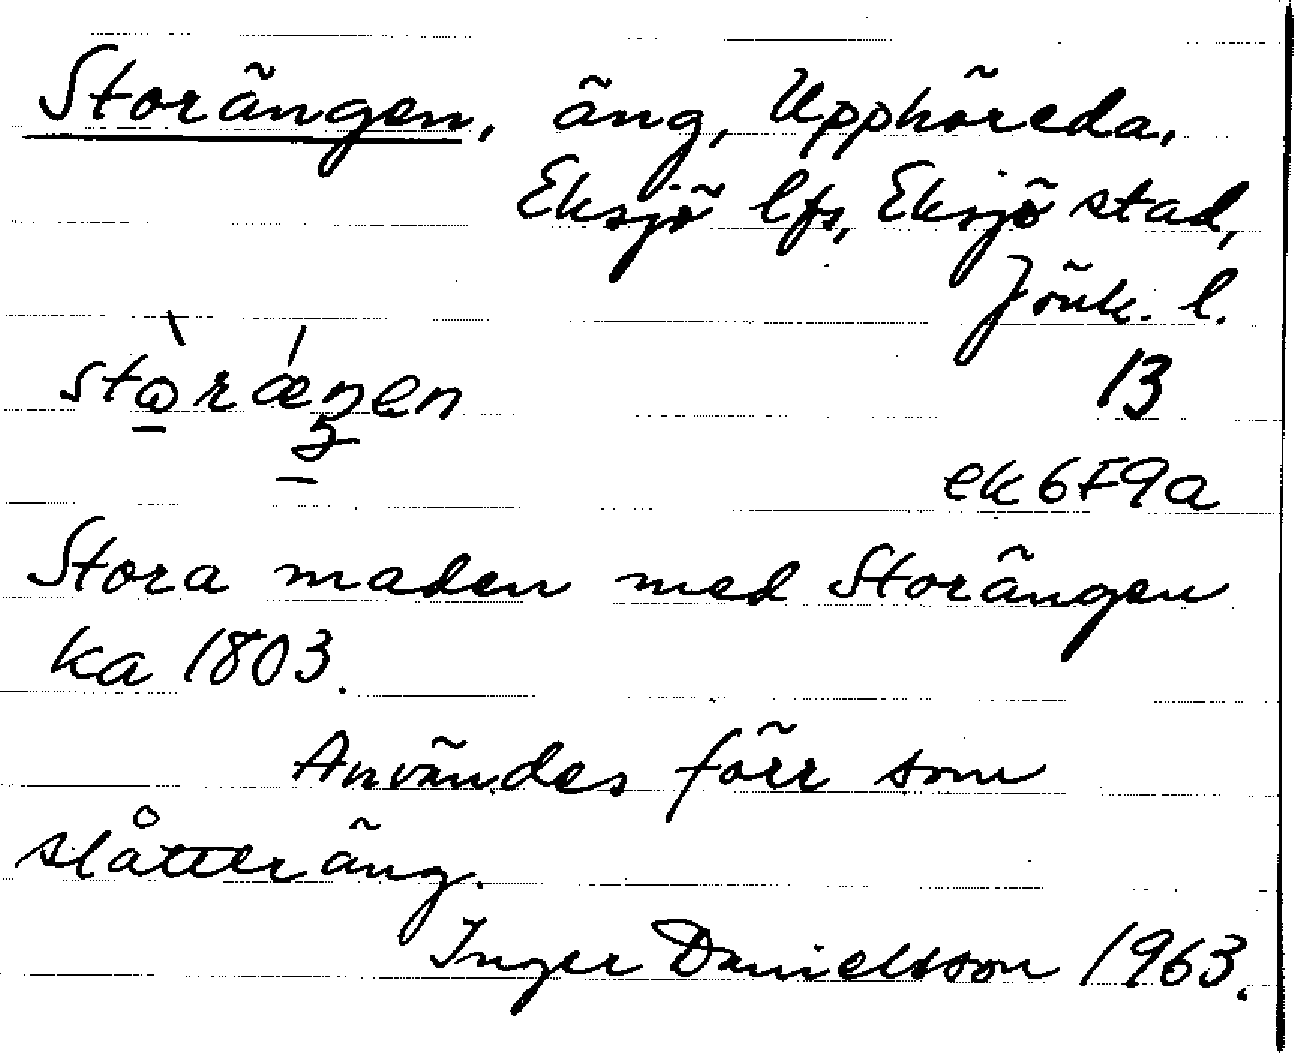 Storängen, äng, Upphöreda,
Eksjö lfs, Eksjö stad,
Jönk. l.
13
ek6F9a
Stora maden med Storängen
ka 1803.
Användes förr som
slåtteräng.
Inger Danielsson 1963.